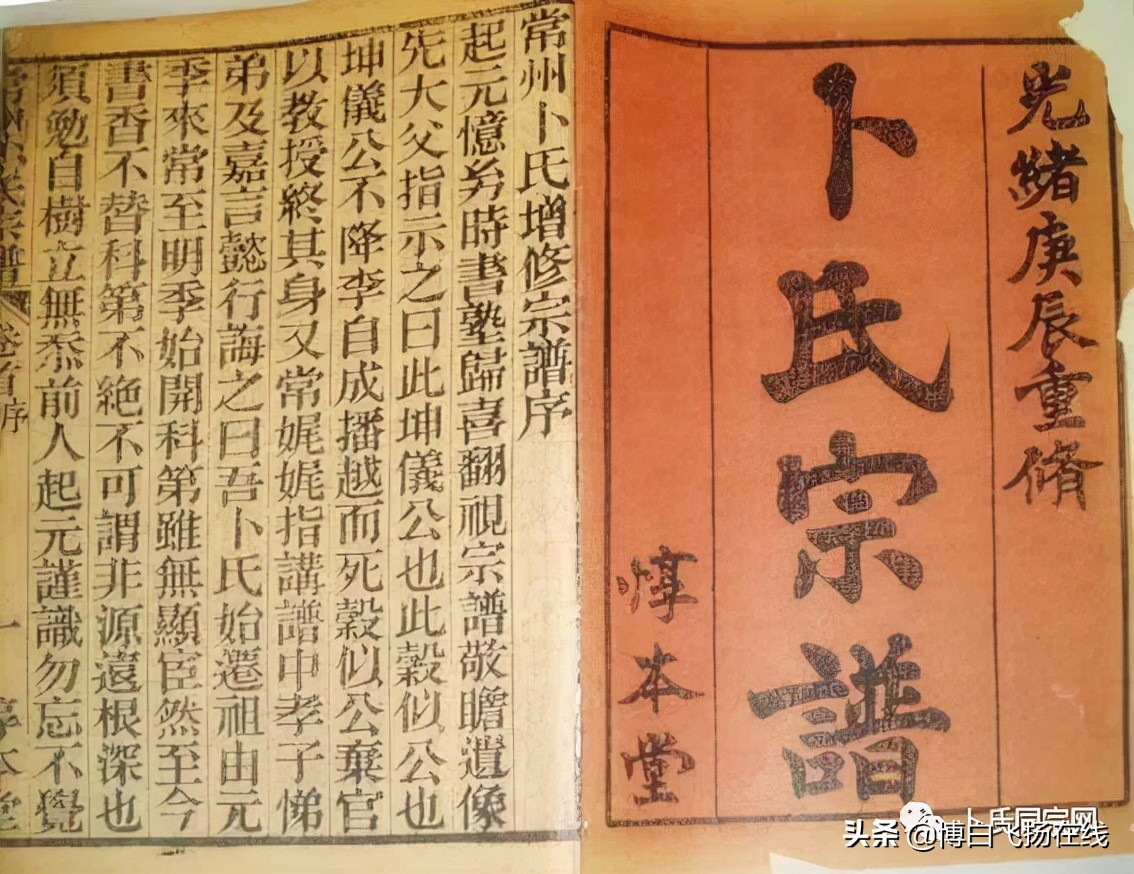 光緒庚辰重脩
卜氏宗譜
惇本堂
常州卜氏增修宗譜序
起元憶㓜時書塾歸喜翻視宗譜敬瞻遺像
先大父指示之曰此坤儀公也此穀似公也
坤儀公不降李自成播越而死穀似公棄官
以教授終其身又常娓娓指講譜中孝子悌
弟及嘉言懿行誨之曰吾卜氏始遷祖由元
季來常至明季始開科第雖無顯宦然至今
書香不替科第不絶不可謂非源遠根深也
須勉自樹立無忝前人起元謹識勿忘不覺
卷首序
一
卜氏同宗网
头条 @博白飞扬在线